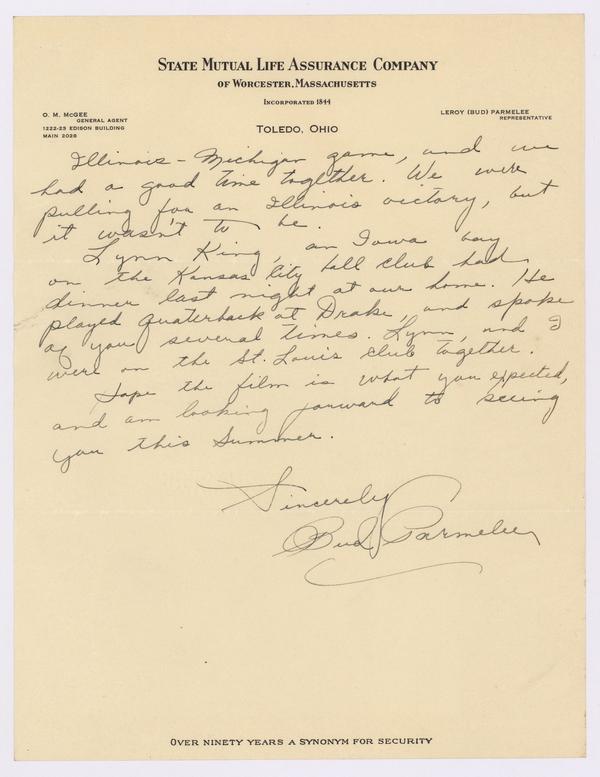 STATE MUTUAL LIFE ASSURANCE COMPANY
OF WORCESTER, MASSACHUSETTS
INCORPORATED 1844
O. M. McGEE
GENERAL AGENT
1222-25 EDISON BUILDING
MAIN 2028
LEROY (BUD) PARMELEE
REPRESENTATIVE
TOLEDO, OHIO
Illinois - Michigan game, and we
had a good time together. We were
pulling for an Illinois victory, but
it wasn't to be.
Lynn King, an Iowa boy
on the Kansas City ball club had
dinner last night at our home. He
played quaterback at Drake, and spoke
of you several times. Lynn, and I
were on the St. Louis club together.
Hope the film is what you expected,
and am looking forward to seeing
you this Summer.
Sincerely
Bud Parmelee
OVER NINETY YEARS A SYNONYM FOR SECURITY